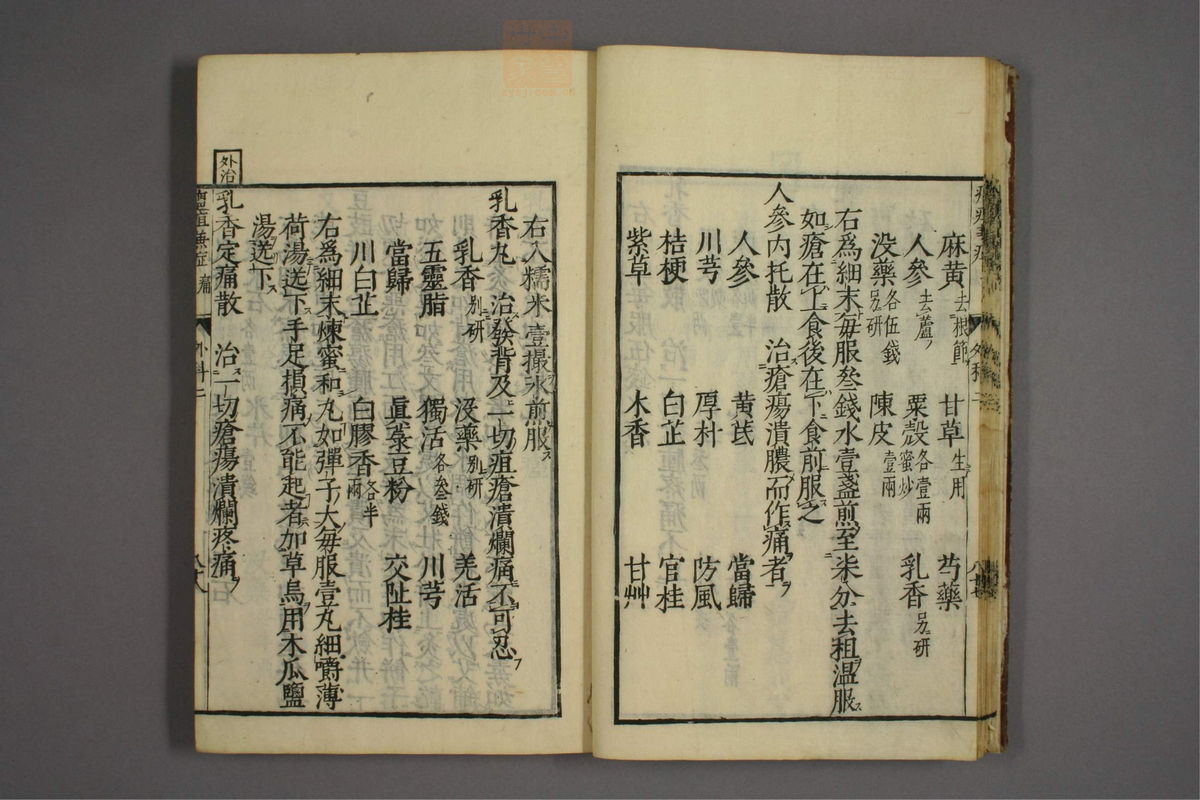 麻黃去根節　甘草生用　芍藥
人參去蘆　粟殼各壹兩蜜炒　乳香另研
没藥各伍錢另研　陳皮壹兩
右爲細末每服叄錢水壹盞煎至柒分去柤溫服
如瘡在上食後在下食前服之
人參內托散　治瘡瘍潰膿而作痛者
人參　黃芪　當歸
川芎　厚朴　防風
桔梗　白芷　官桂
紫草　木香　甘艸
右入糯米壹撮水煎服
乳香丸　治發背及一切疽瘡潰爛痛不可忍
乳香別研　没藥別研　羌活
五靈脂　獨活各叄錢　川芎
當歸　眞菉豆粉　交趾桂
川白芷　白膠香各半兩
右爲細末煉蜜和丸如彈子大每服壹丸細嚼薄
荷湯送下手足損痛不能起者加草烏用木瓜鹽
湯送下
外治
乳香定痛散　治一切瘡瘍潰爛疼痛
外科二